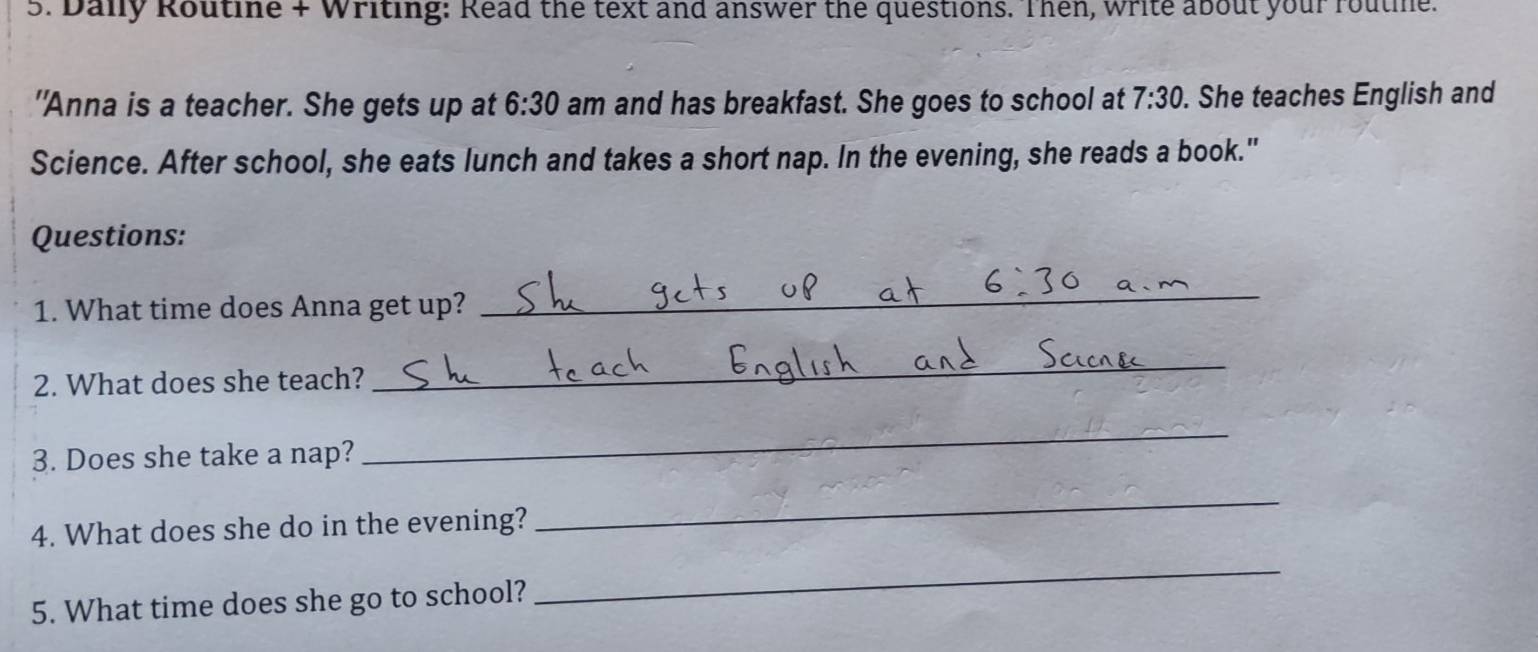 5. Daily Routine + Writing: Read the text and answer the questions. Then, write about your routine.
"Anna is a teacher. She gets up at 6:30 am and has breakfast. She goes to school at 7:30. She teaches English and
Science. After school, she eats lunch and takes a short nap. In the evening, she reads a book."
Questions:
1. What time does Anna get up? She gets up at 6:30 a.m
2. What does she teach? She teach English and Science
3. Does she take a nap?
4. What does she do in the evening?
5. What time does she go to school?